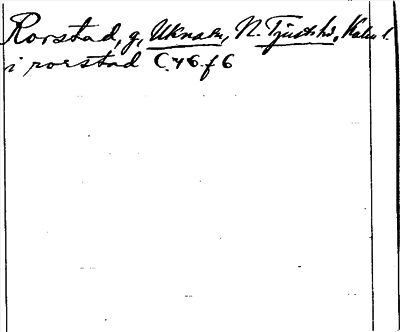 Rorstad, g, Uknab., N. Tjusts hd, Kalm l.
i rorstad C. 46. f 6